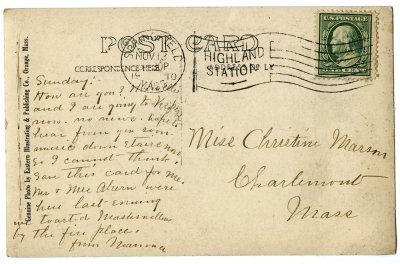 POST CARD
CORRESPONDENCE HERE
SPRINGFIELD
NOV 13
10
MASS
HIGHLAND
STATION
U.S. POSTAGE
Genuine Photo by Eastern Illustrating & Publishing Co., Orange, Mass.
Sunday.
How are you?
and I are going to
now. no news. hope to
hear from you soon.
music down stairs
so I cannot think.
Saw this card for me.
Mr & Mrs Ahern were
here last evening
we toasted Mashmellows
by the fire place.
from
Miss Christine Marson
Charlemont
Mass